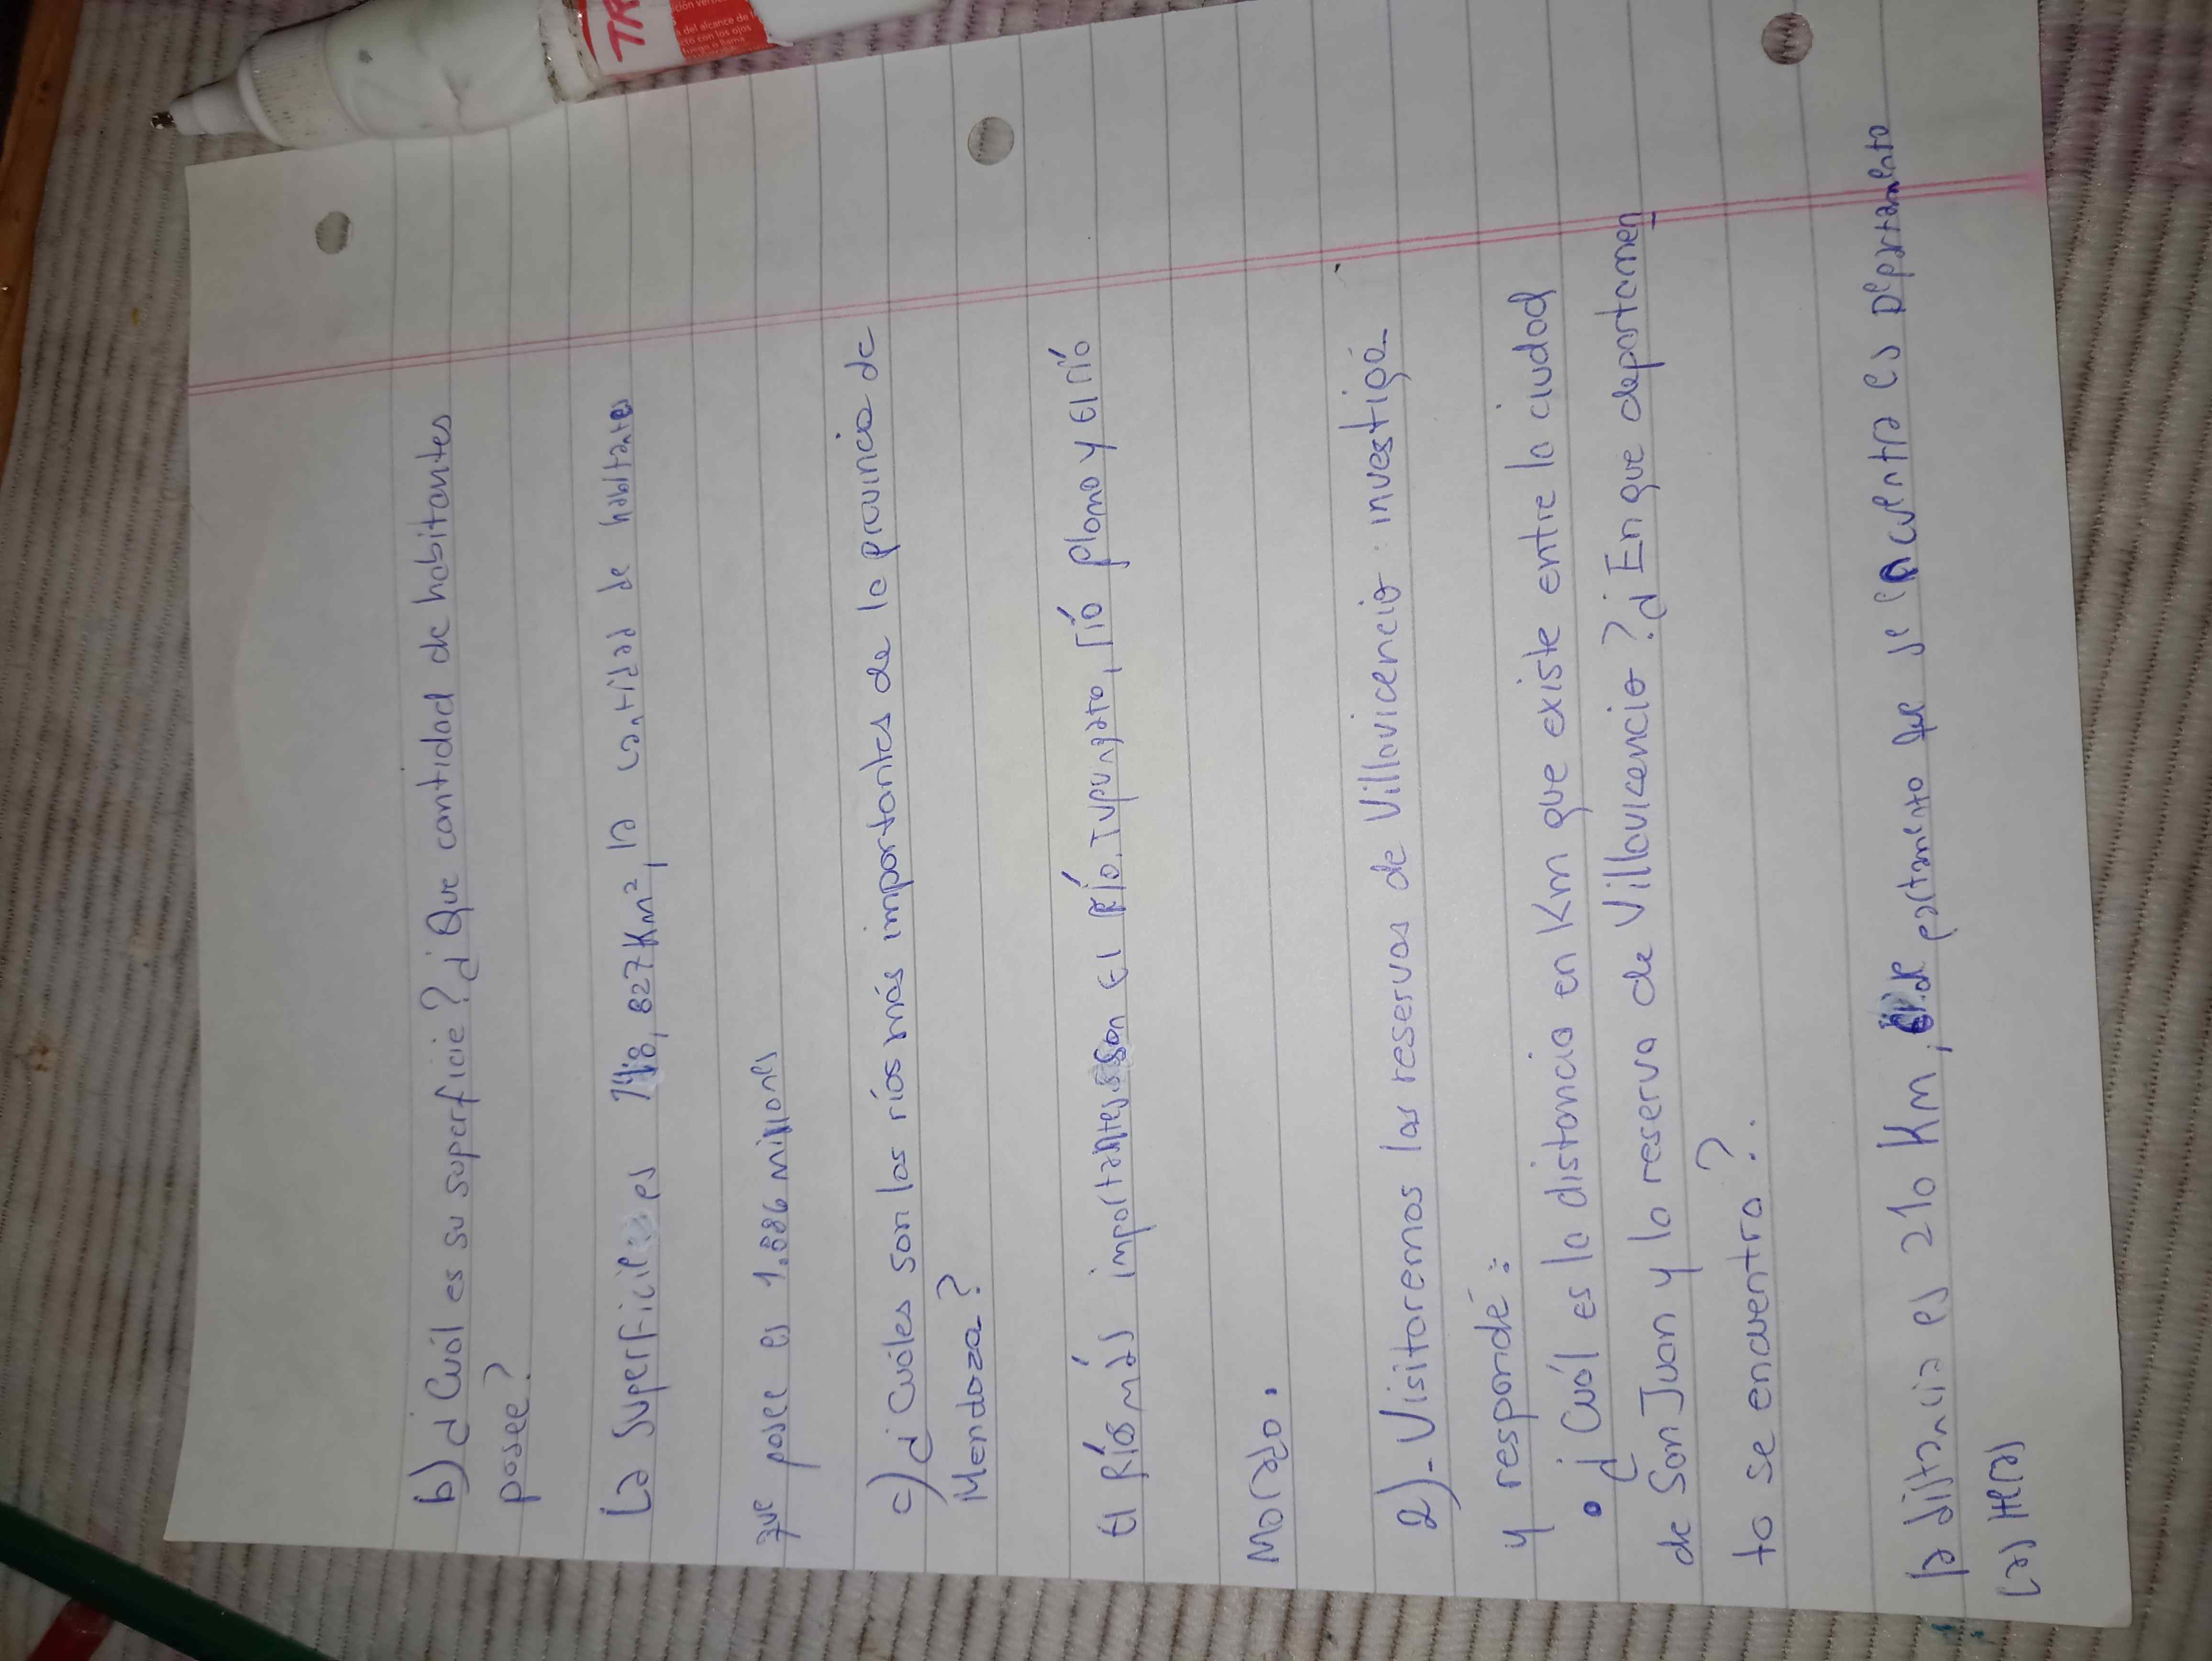 b) ¿Cuál es su superficie? ¿Que cantidad de habitantes
posee?
La superficie es 148,827Km², la cantidad de habitantes
que posee es 1.886 millones
c) ¿Cuáles son los ríos más importantes de la provincia de
Mendoza?
El Ríos más importantes son El Río, Tupungato, río plomo y El río
Morado.
2)- Visitaremos las reservas de Villavicencio: investigá
y respondé:
• ¿Cuál es la distancia en Km que existe entre la ciudad
de San Juan y la reserva de Villavicencio? ¿En que departamen
to se encuentra?.
la distancia es 210 Km, de partamento que se encuentra es Departamento
Las Heras
TR
del alcance de l
con los ojos